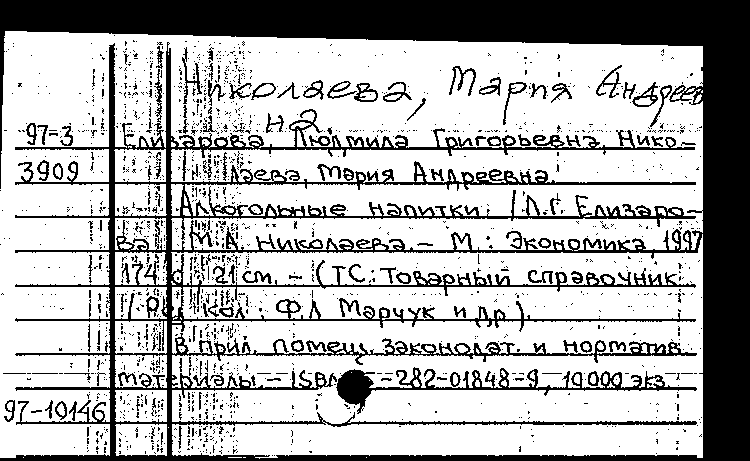 Николаева, Мария Андреев
на
97-3 Елизарова, Людмила Григорьевна, Нико-
3909 лаева, Мария Андреевна.
Алкогольные напитки. / Л.Г. Елизаро-
ва М.А. Николаева. - М.: Экономика, 1997
174 с., 21 см. - (ТС: Товарный справочник
/ Ред кол.: Ф.Л Марчук и др).
В прил. помещ. законодат. и норматив.
материалы. - ISBN -282-01848-9, 10000 экз
97-10146